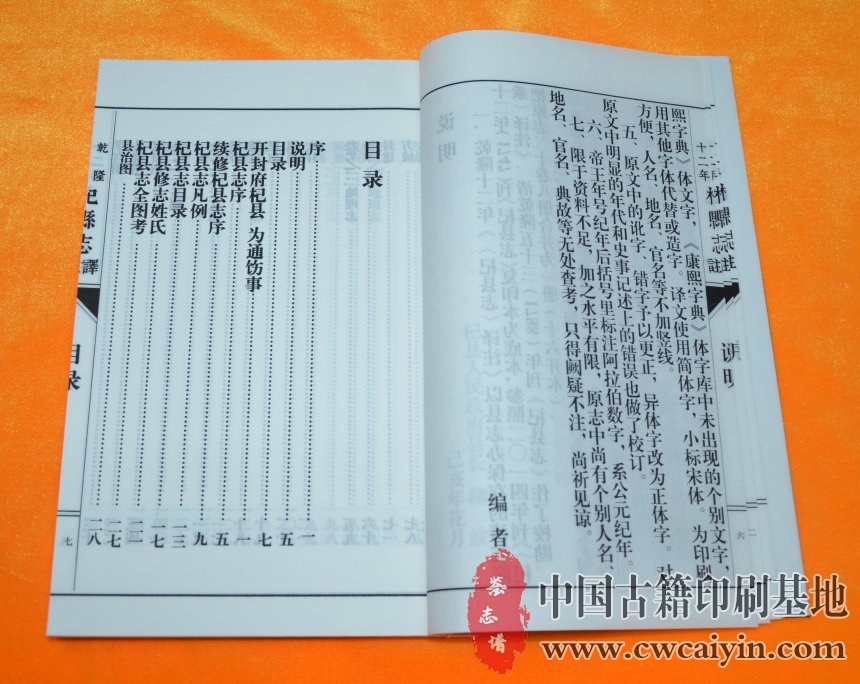 熙字典》体文字，《康熙字典》体字库中未出现的个别文字，
用其他字体代替或造字。译文使用简体字，小标宋体。为印刷
方便，人名、地名、官名等不加竖线。
五、原文中的讹字、错字予以更正，异体字改为正体字。对
原文中明显的年代和史事记述上的错误也做了校订。
六、帝王年号纪年后括号里标注阿拉伯数字，系公元纪年。
七、限于资料不足，加之水平有限，原志中尚有个别人名、
地名、官名、典故等无处查考，只得阙疑不注，尚祈见谅。
编者
说明
六
目录
序……一
说明……五
目录……七
开封府杞县 为通饬事……一
杞县志序……五
续修杞县志序……九
杞县志凡例……一三
杞县志目录……一七
杞县修志姓氏……
杞县志全图考……二七
县治图……二八
乾隆
杞縣志譯
目录
七
鉴志谱
中国古籍印刷基地
www.cwcaiyin.com